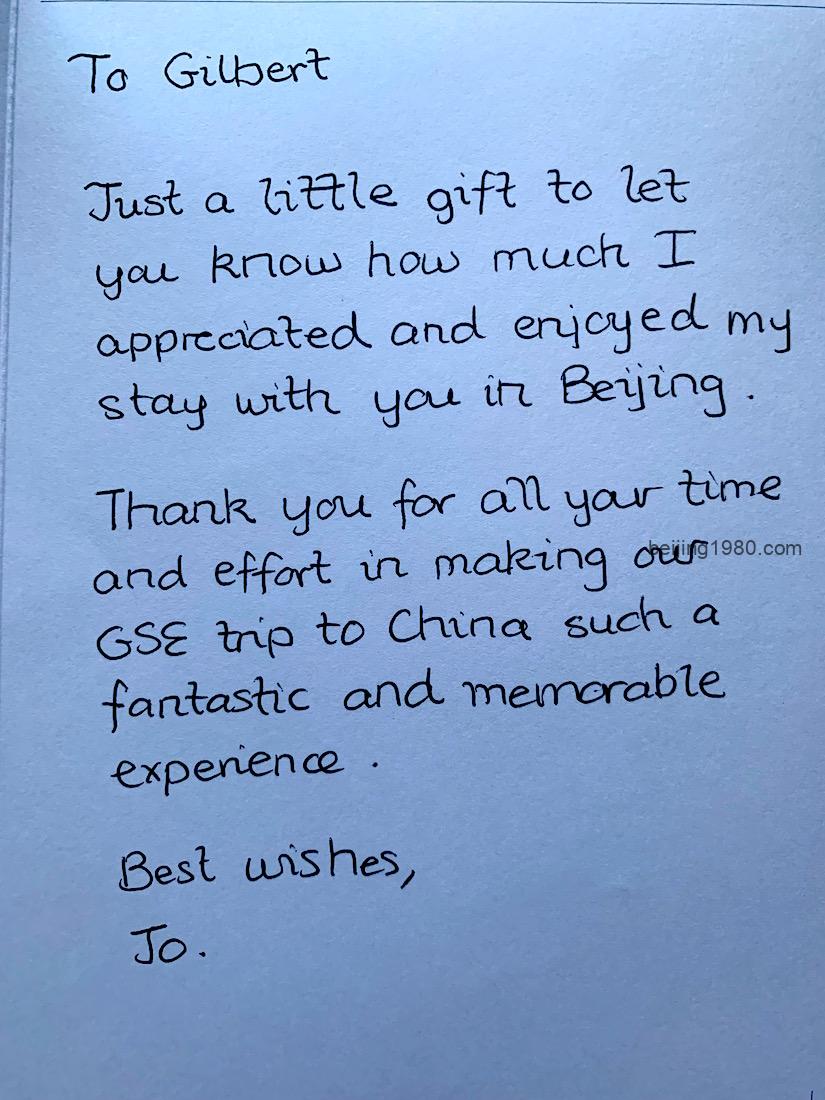 To Gilbert
Just a little gift to let
you know how much I
appreciated and enjoyed my
stay with you in Beijing.
Thank you for all your time
and effort in making our
beijing1980.com
GSE trip to China such a
fantastic and memorable
experience.
Best wishes,
Jo.